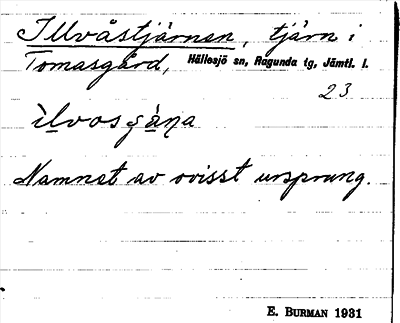 Illvåstjärnen, tjärn i
Tomasgård, Hällesjö sn, Ragunda tg, Jämtl. l.
23
Namnet av ovisst ursprung.
E. BURMAN 1931